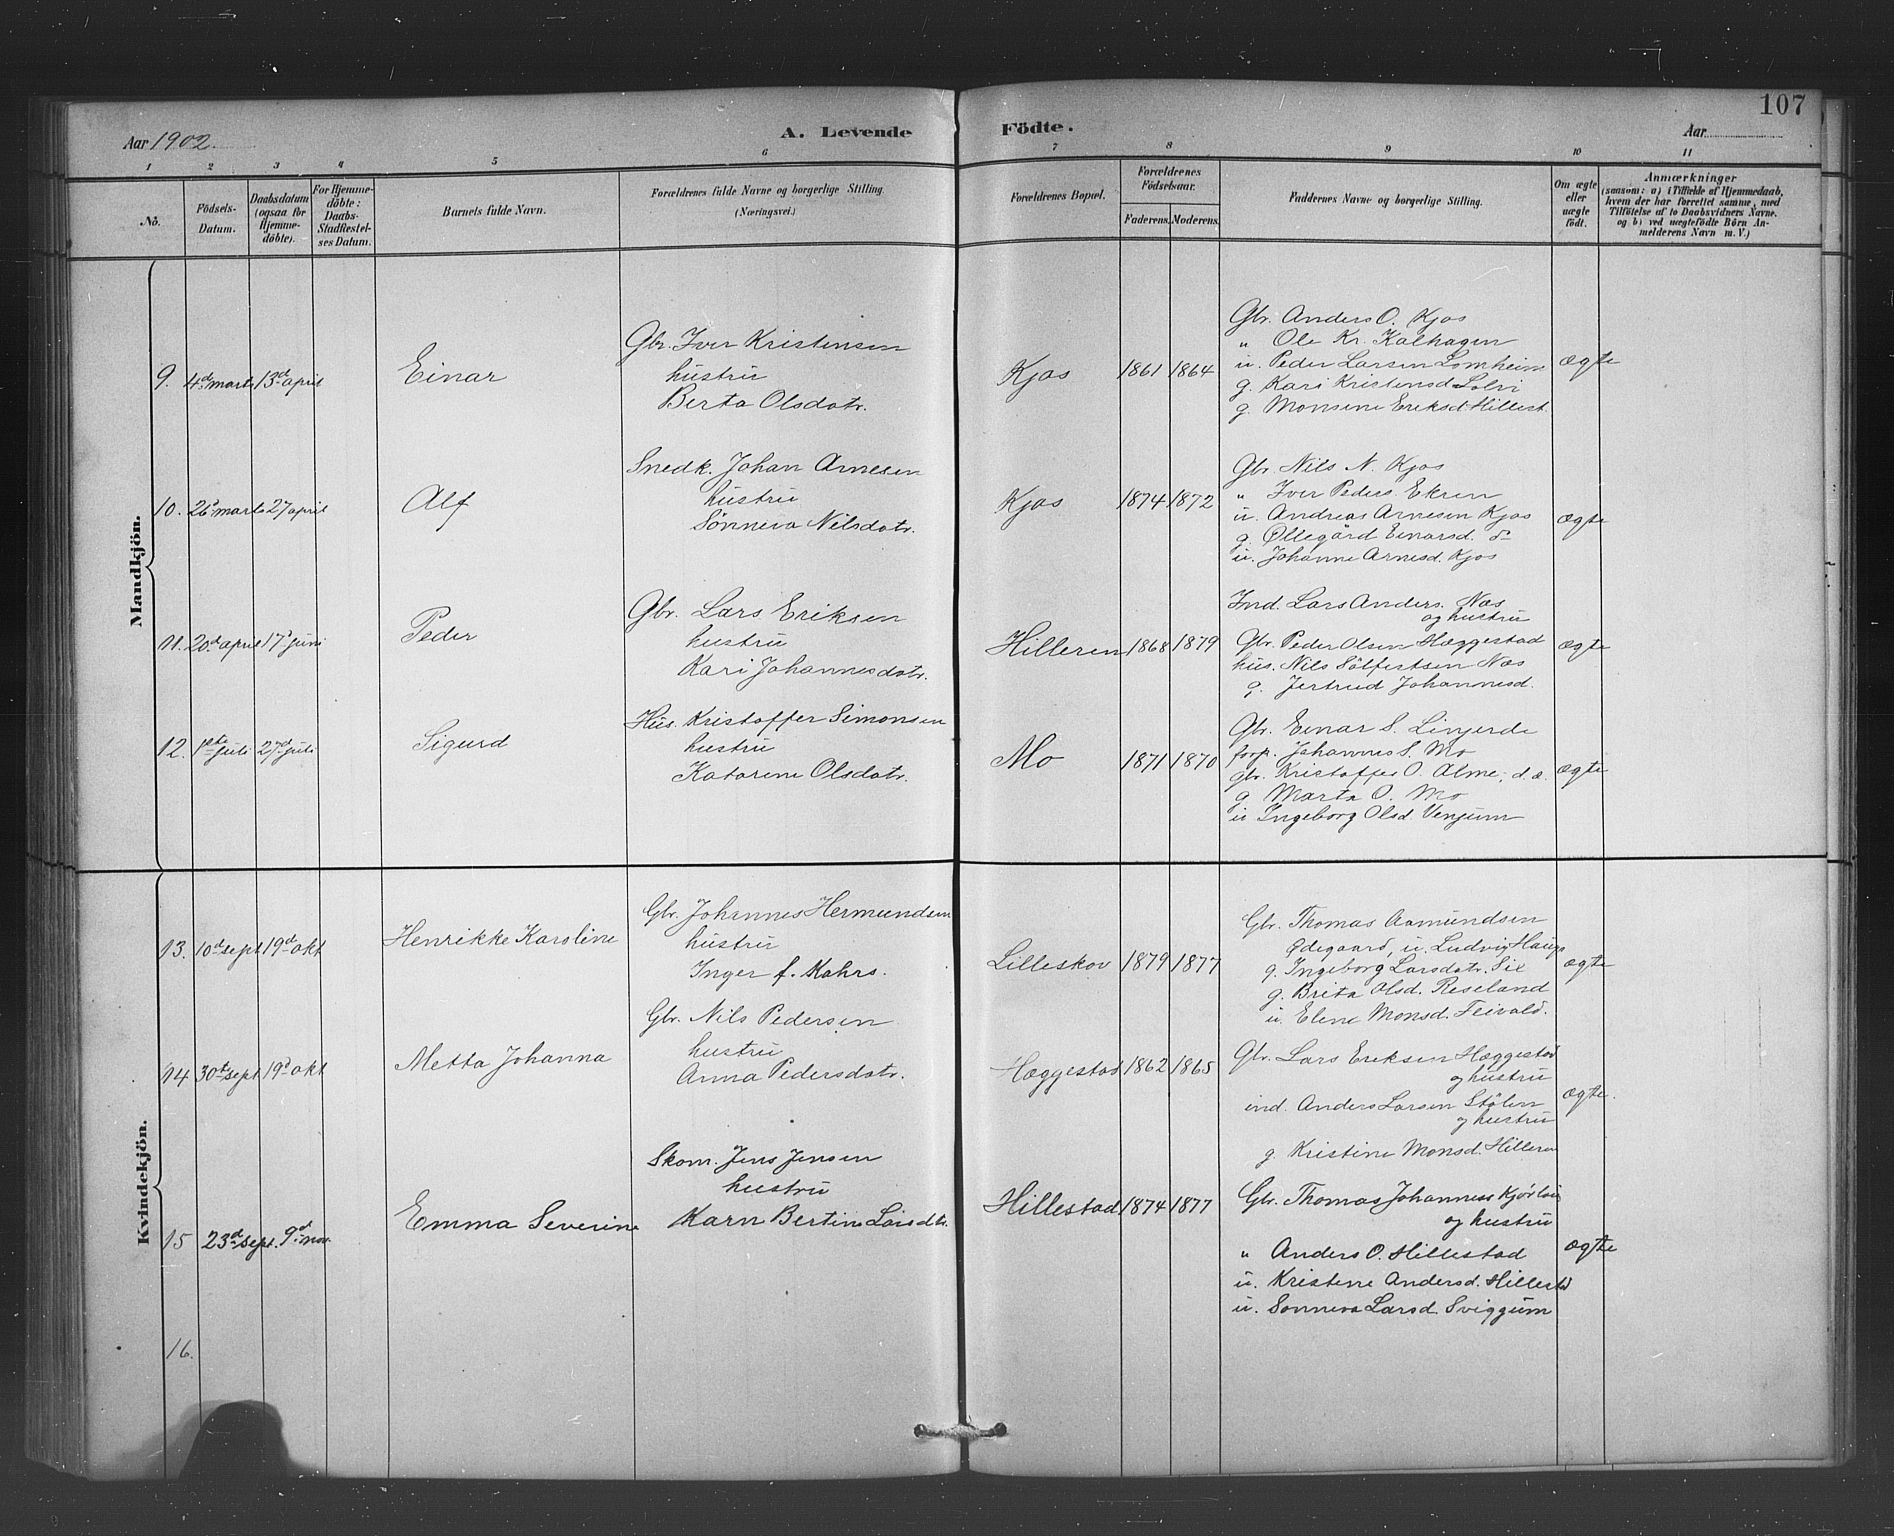 107
Aar 1902
A. Levende Födte.
Aar
1 2 3 4 5 6 7 8 9 10 11
No.
Födsels-Datum.
Daabsdatum (ogsaa for Hjemme-döbte).
For Hjemme-döbte: Daabs-Stadfæstel-ses Datum.
Barnets fulde Navn.
Forældrenes fulde Navne og borgerlige Stilling.
(Næringsvei.)
Forældrenes Bopæl.
Forældrenes Födselsaar.
Faderens. Moderens.
Faddernes Navne og borgerlige Stilling.
Om ægte eller uægte födt.
Anmærkninger
(saasom: a) i Tilfælde af Hjemmedaab,
hvem der har forrettet samme, med
Tilföielse af to Daabsvidners Navne.
og b) ved uægtefödte Börn An-
melderens Navn m. V.)
Mandkjön.
9. 4d marts 13d april
Einar
Gbr. Iver Kristensen
hustru
Berta Olsdatr.
Kjos 1861 1864
Gbr. Anders O. Kjos
" Ole Kr. Kalhagen
u. Peder Larsen Lomheim
g. Kari Kristensd. Solvi
g. Monsine Eriksd. Hillest.
ægte
10. 26d marts 27 april
Alf
Snedk. Johan Arnesen
hustru
Sønneva Nilsdatr.
Kjos 1874 1872
Gbr. Nils N. Kjos
" Iver Peders. Ekren
u. Andreas Arnesen Kjos
g. Øllegård Einarsd.
u. Johanne Arnesd. Kjos
ægte
11. 20d april 17d juni
Peder
Gbr. Lars Eriksen
hustru
Kari Johannesdatr.
Hilleren 1868 1879
Ind. Lars Anders. Næs
og hustru
Gbr. Peder Olsen Hæggestad
hus. Nils Sölfertsen Næs
g. Jertrud Johannesd.
ægte
12. 1ste juli 27d juli
Sigurd
Hus. Kristoffer Simonsen
hustru
Katarine Olsdatr.
Mo 1871 1870
Gbr. Einar S. Linjerde
forp. Johannes S. Mo
gbr. Kristoffer O. Alme, d. æ.
g Marta O. Mo
u Ingeborg Olsd. Venjum
ægte
Kvindekjön.
13. 10d sept 19d okt
Henrikke Karoline
Gbr. Johannes Hermundsen
hustru
Inger f. Kahrs.
Lilleskov 1879 1877
Gbr. Thomas Aamundsen
Ødegaard, u. Ludvig Haugs
g. Ingeborg Larsdatr. Six
g. Brita Olsd. Reseland
u. Eline Monsd. Feivald.
ægte
14 30te sept 19d okt
Metta Johanna
Gbr. Nils Pedersen
hustru
Anna Pedersdatr.
Hæggestad 1862 1865
Gbr. Lars Eriksen Hæggestad
og hustru
ind. Anders Larsen Stölen
og hustru
g. Kristine Monsd. Hilleren
ægte.
15 23d sept. 9d nov.
Emma Severine
Skom. Jens Jensen
hustru
Karn Bertine Larsdtr.
Hillestad 1874 1877
Gbr. Thomas Johanness
og hustru
" Anders O. Hillestad
u. Kristine Andersd. Hillestd
u. Sonneva Larsd. Sviggum
ægte
16.